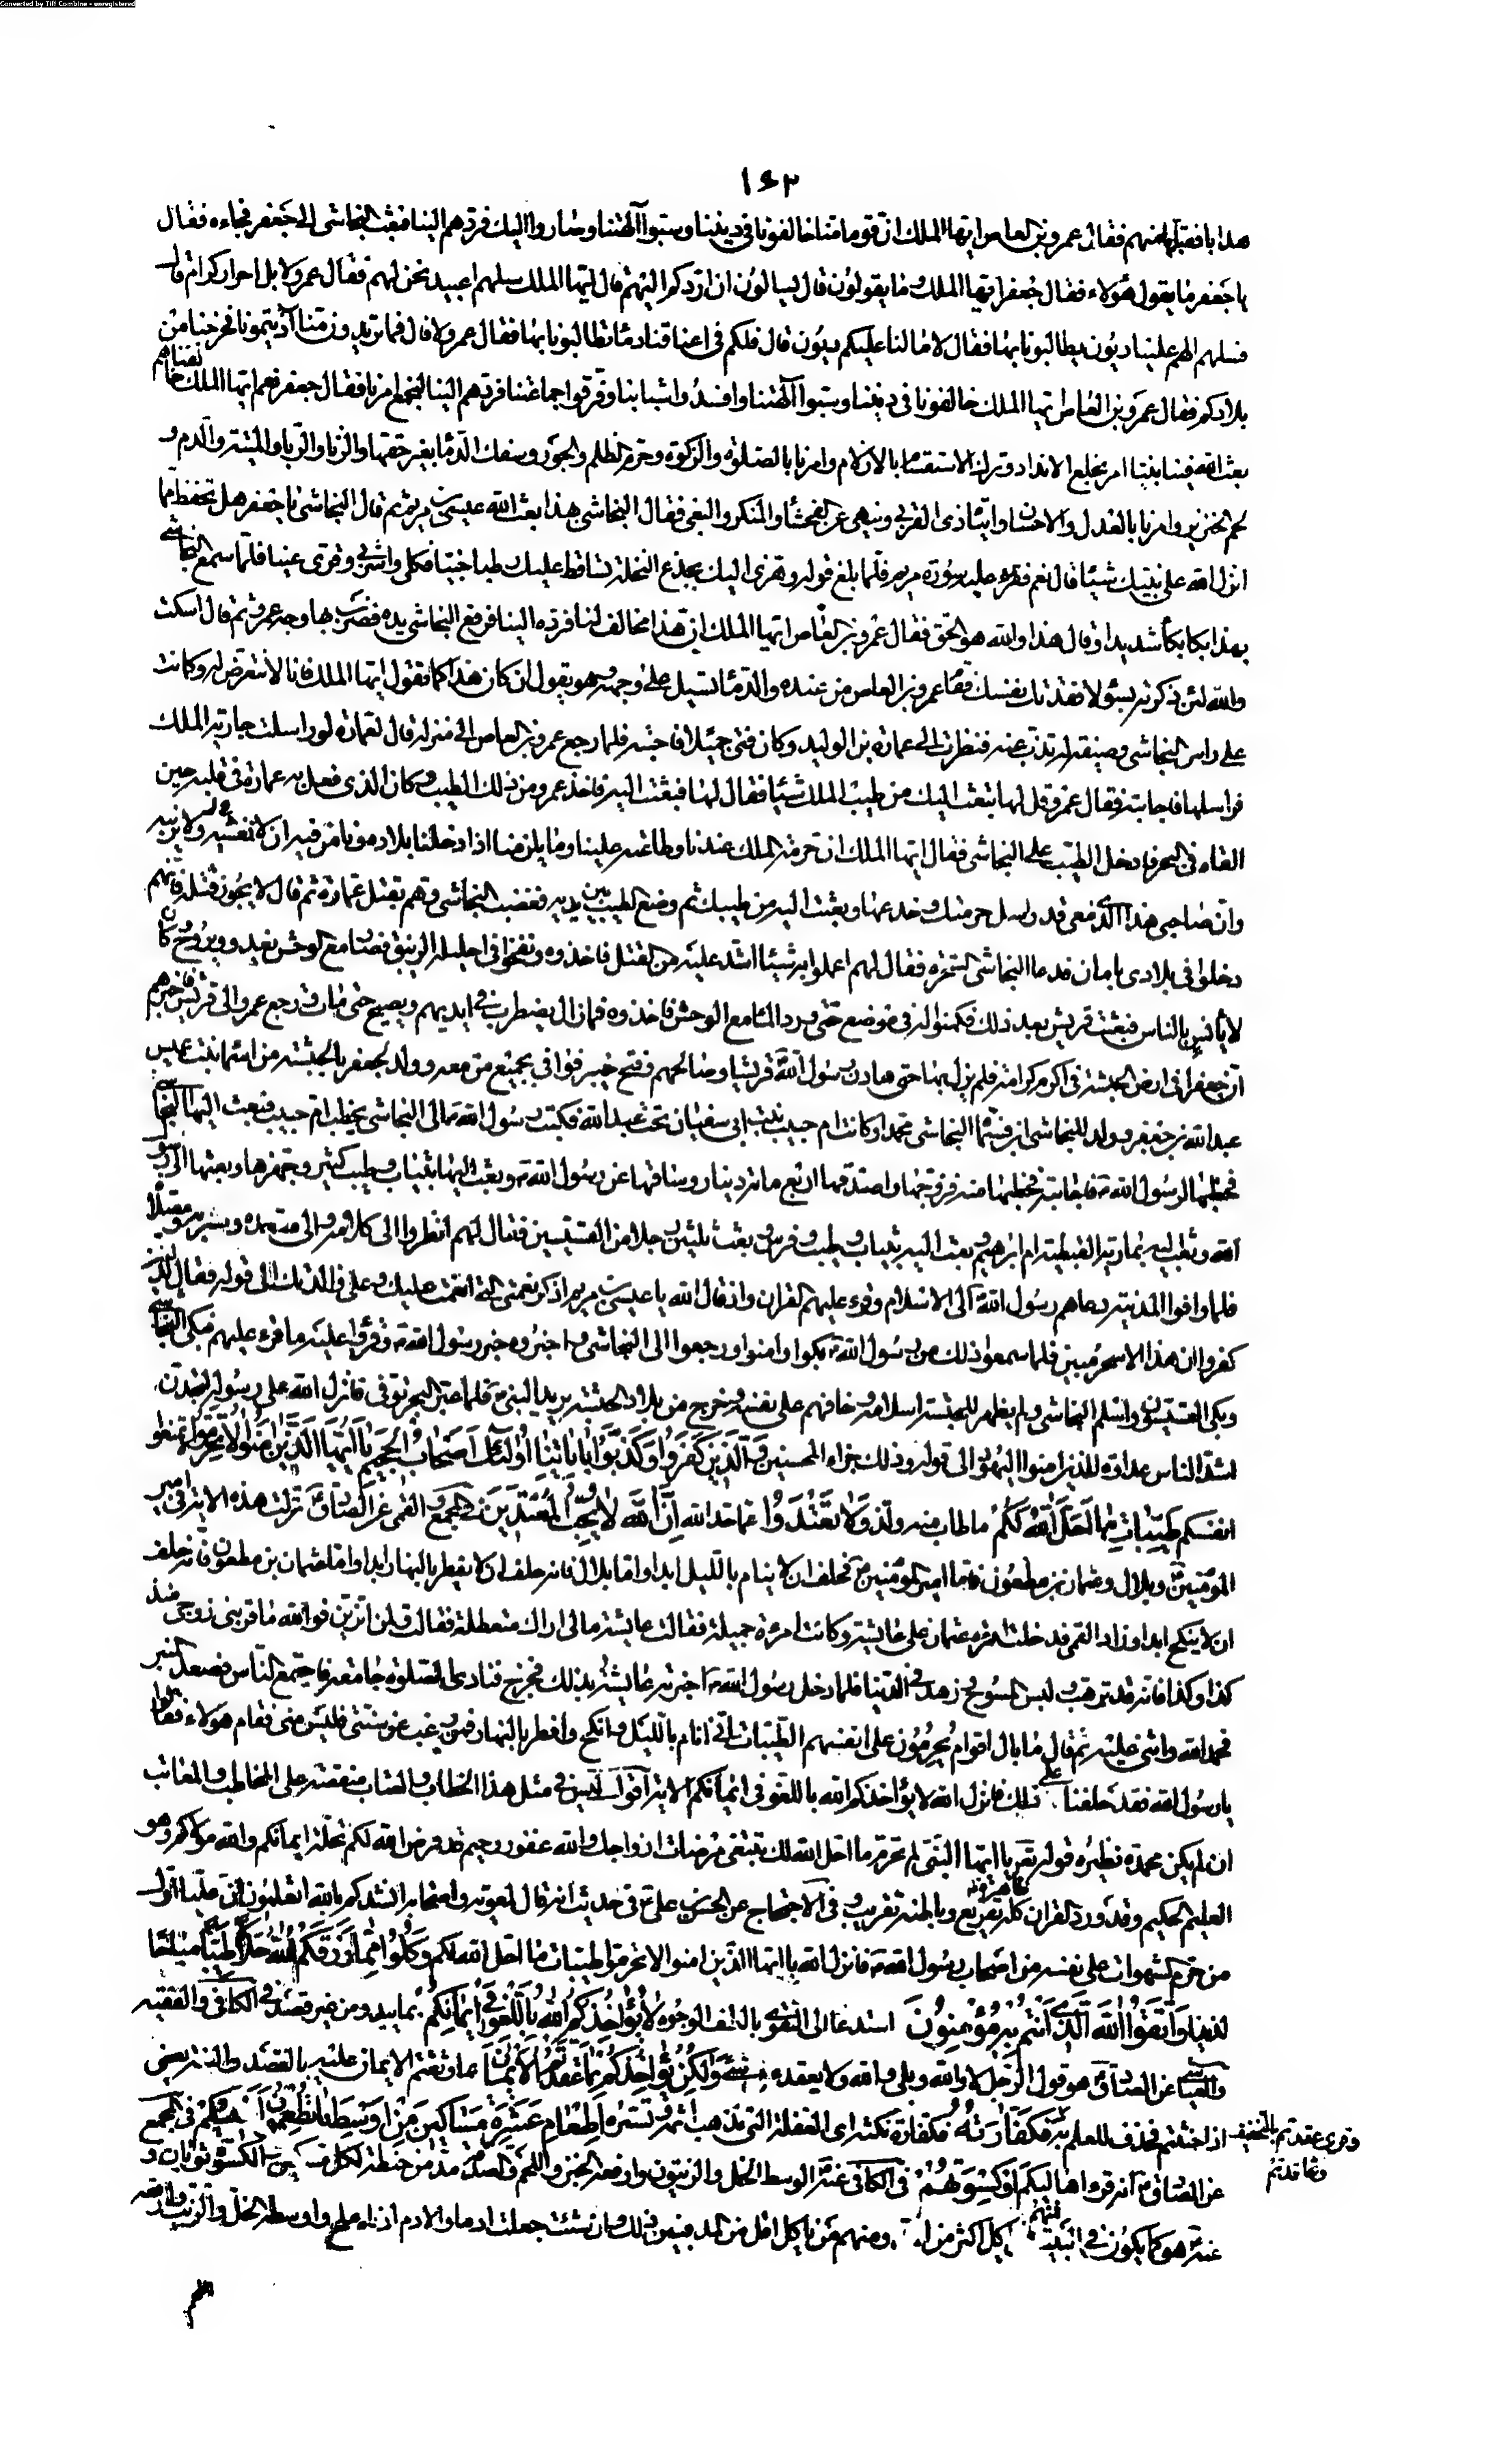 Converted by Tiff Combine - unregistered
١٤٣
هدايا فقبلها منهم فقال عمرو بن العاص ايها الملك ان قوما منا خالفونا في ديننا وسبوا آلهتنا وصاروا اليك فردهم الينا فبعث النجاشي الى جعفر فجاءه فقال
يا جعفر ما يقول هؤلاء فقال جعفر ايها الملك وما يقولون قال يسالون ان اردكم اليهم قال ايها الملك سلهم اعبيد نحن لهم فقال عمرو لا بل احرار كرام قال
فسلهم الهم علينا ديون يطالبونا بها فقال لا ما لنا عليكم ديون قال فلكم في اعناقنا دماء تطالبونا بها فقال عمرو لا قال فما تريدون منا آذيتمونا فخرجنا من
بلادكم فقال عمرو بن العاص ايها الملك خالفونا في ديننا وسبوا آلهتنا وافسدوا شبابنا وفرقوا جماعتنا فردهم الينا لنجمع امرنا فقال جعفر نعم ايها الملك خالفناهم
بعث الله فينا نبيا امر بخلع الانداد وترك الاستقسام بالازلام وامرنا بالصلوة والزكوة وحرم الظلم والجور وسفك الدماء بغير حقها والزنا والربا والميتة والدم و
لحم الخنزير وامرنا بالعدل والاحسان وايتاء ذي القربى وينهى عن الفحشاء والمنكر والبغي فقال النجاشي بهذا بعث الله عيسى بن مريم ثم قال النجاشي يا جعفر هل تحفظ مما
انزل الله على نبيك شيئا قال نعم فقرء عليه سورة مريم فلما بلغ قوله وهزي اليك بجذع النخلة تساقط عليك رطبا جنيا فكلي واشربي وقري عينا فلما سمع النجاشي
بهذا بكا بكاء شديدا وقال هذا والله هو الحق فقال عمرو بن العاص ايها الملك ان هذا مخالف لنا فرده الينا فرفع النجاشي يده فضرب بها وجه عمرو ثم قال اسكت
والله لئن ذكرته بسوء لافقدنك نفسك فقام عمرو بن العاص من عنده والدماء تسيل على وجهه وهو يقول ان كان هذا كما تقول ايها الملك فانا لا نتعرض له وكانت
على راس النجاشي وصيفة له تذب عنه فنظرت الى عمارة بن الوليد وكان فتى جميلا فاحبته فلما رجع عمرو بن العاص الى منزله قال لعمارة لو راسلت جارية الملك
فراسلها فاجابته فقال عمرو قل لها تبعث اليك من طيب الملك شيئا فقال لها فبعثت اليه فاخذ عمرو من ذلك الطيب وكان الذي فعل به عمارة في قلبه حين
القاه في البحر فادخل الطيب على النجاشي فقال ايها الملك ان حرمة الملك عندنا وطاعته علينا وما يلزمنا اذا دخلنا بلاده ونامن فيه ان لا نغشه ولا نريبه
وان صاحبي هذا الذي معي قد راسل حرمتك وخدعها وبعثت اليه من طيبك ثم وضع الطيب بين يديه فغضب النجاشي وهم بقتل عمارة ثم قال لا يجوز قتله فانهم
دخلوا في بلادي بامان فدعا النجاشي السحرة فقال لهم اعملوا به شيئا اشد عليه من القتل فاخذوه ونفخوا في احليله الزيبق فصار مع الوحش يغدو ويروح وكان
لا يانس بالناس فبعثت قريش بعد ذلك فكمنوا له في موضع حتى ورد الماء مع الوحش فاخذوه فما زال يضطرب في ايديهم ويصيح حتى مات ورجع عمرو الى قريش فاخبرهم
ان جعفرا في ارض الحبشة في اكرم كرامة فلم يزل بها حتى هادن رسول الله قريشا وصالحهم وفتح خيبر فوافى بجميع من معه وولد لجعفر بالحبشة من اسماء بنت عميس
عبد الله بن جعفر وولد للنجاشي ابن فسماه النجاشي محمدا وكانت ام حبيب بنت ابي سفيان تحت عبد الله فكتب رسول الله الى النجاشي يخطب ام حبيب فبعث اليها النجاشي
فخطبها لرسول الله فاجابته فخطبها منه فزوجها واصدقها اربع مائة دينار وساقها عن رسول الله وبعث اليها بثياب وطيب كثير وجهزها وبعثها الى رسول
الله وبعث اليه بمارية القبطية ام ابراهيم وبعث اليه بثياب وطيب وفرس وبعث ثلثين رجلا من القسيسين فقال لهم انظروا الى كلامه والى مقعده ومشربه ومصلاه
فلما وافوا المدينة دعاهم رسول الله الى الاسلام وقرء عليهم القران واذ قال الله يا عيسى بن مريم اذكر نعمتي التي انعمت عليك وعلى والدتك الى قوله فقال الذين
كفروا ان هذا الا سحر مبين فلما سمعوا ذلك من رسول الله بكوا وامنوا ورجعوا الى النجاشي واخبروه خبر رسول الله وقرؤا عليه ما قرء عليهم فبكى النجاشي
وبكى القسيسون واسلم النجاشي ولم يظهر للحبشة اسلامه وخافهم على نفسه وخرج من بلاد الحبشة يريد النبي فلما عبر البحر توفي فانزل الله على رسوله لتجدن
اشد الناس عداوة للذين امنوا اليهود الى قوله وذلك جزاء المحسنين والذين كفروا وكذبوا باياتنا اولئك اصحاب الجحيم يا ايها الذين امنوا لا تحرموا لا تمنعوا
انفسكم طيبات ما احل الله لكم ما طاب منه ولذ ولا تعتدوا عما حد الله ان الله لا يحب المعتدين في المجمع والقمي عن الصادق نزلت هذه الاية في امير
المؤمنين وبلال وعثمان بن مظعون فاما امير المؤمنين فحلف ان لا ينام بالليل ابدا واما بلال فانه حلف ان لا يفطر بالنهار ابدا واما عثمان بن مظعون فانه حلف
ان لا ينكح ابدا وزاد القمي فدخلت امرءة عثمان على عايشة وكانت امرءة جميلة فقالت عايشة مالي اراك متعطلة فقالت ولمن اتزين فوالله ما قربني زوجي منذ
كذا وكذا فانه قد ترهب ولبس المسوح وزهد في الدنيا فلما دخل رسول الله اخبرته عايشة بذلك فخرج فنادى الصلوة جامعة فاجتمع الناس فصعد المنبر
فحمد الله واثنى عليه ثم قال ما بال اقوام يحرمون على انفسهم الطيبات اني انام بالليل وانكح وافطر بالنهار فمن رغب عن سنتي فليس مني فقام هؤلاء فقالوا
يا رسول الله فقد حلفنا على ذلك فانزل الله لا يؤاخذكم الله باللغو في ايمانكم الاية اقول ليس في مثل هذا الخطاب والعتاب منقصة على المخاطب والمعاتب
ان لم يكن محمدة نظيره قوله تعالى يا ايها النبي لم تحرم ما احل الله لك تبتغي مرضات ازواجك والله غفور رحيم قد فرض الله لكم تحلة ايمانكم والله موليكم وهو
العليم الحكيم وقد ورد القران كله تقريع وباطنه تقريب وفي الاحتجاج عن الحسن بن علي في حديث انه قال لمعوية واصحابه انشدكم بالله اتعلمون ان عليا اول
من حرم الشهوات على نفسه من اصحاب رسول الله فانزل الله يا ايها الذين امنوا لا تحرموا طيبات ما احل الله لكم وكلوا مما رزقكم الله حلالا طيبا مباحا
لذيذا واتقوا الله الذي انتم به مؤمنون استدعاء الى التقوى بالطف الوجوه لا يؤاخذكم الله باللغو في ايمانكم بما يبدو من غير قصد في الكافي والفقيه
والعياشي عن الصادق هو قول الرجل لا والله وبلى والله ولا يعقد على شيء ولكن يؤاخذكم بما عقدتم الايمان بما وثقتم الايمان عليه بالقصد والنية يعني
اذا حنثتم فحذف للعلم به فكفارته فكفارة نكثه اي الفعلة التي تذهب اثمه وتستره اطعام عشرة مساكين من اوسط ما تطعمون اهليكم في المجمع
وقرئ عقدتم بالتخفيف
وعاقدتم
عن الصادق انه قرء اهاليكم او كسوتهم في الكافي عنه الوسط الخل والزيتون وارفعه الخبز واللحم والصدقة مد من حنطة لكل مسكين والكسوة ثوبان و
عنه هو كما يكون في البيت ومنهم من ياكل اقل من المد فبين ذلك وان شئت جعلت لهم ادما والادم ادناه ملح واوسطه الخل والزيت وارفعه